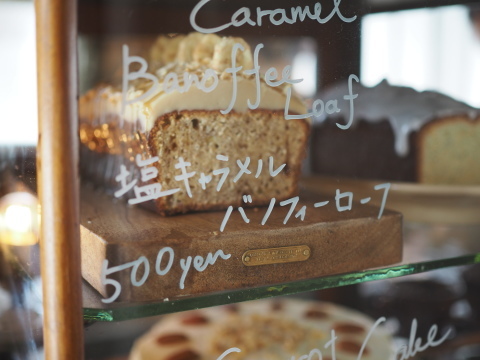 Caramel
Banoffee
Loaf
塩キャラメル
バノフィーローフ
500yen
Carrot Cake